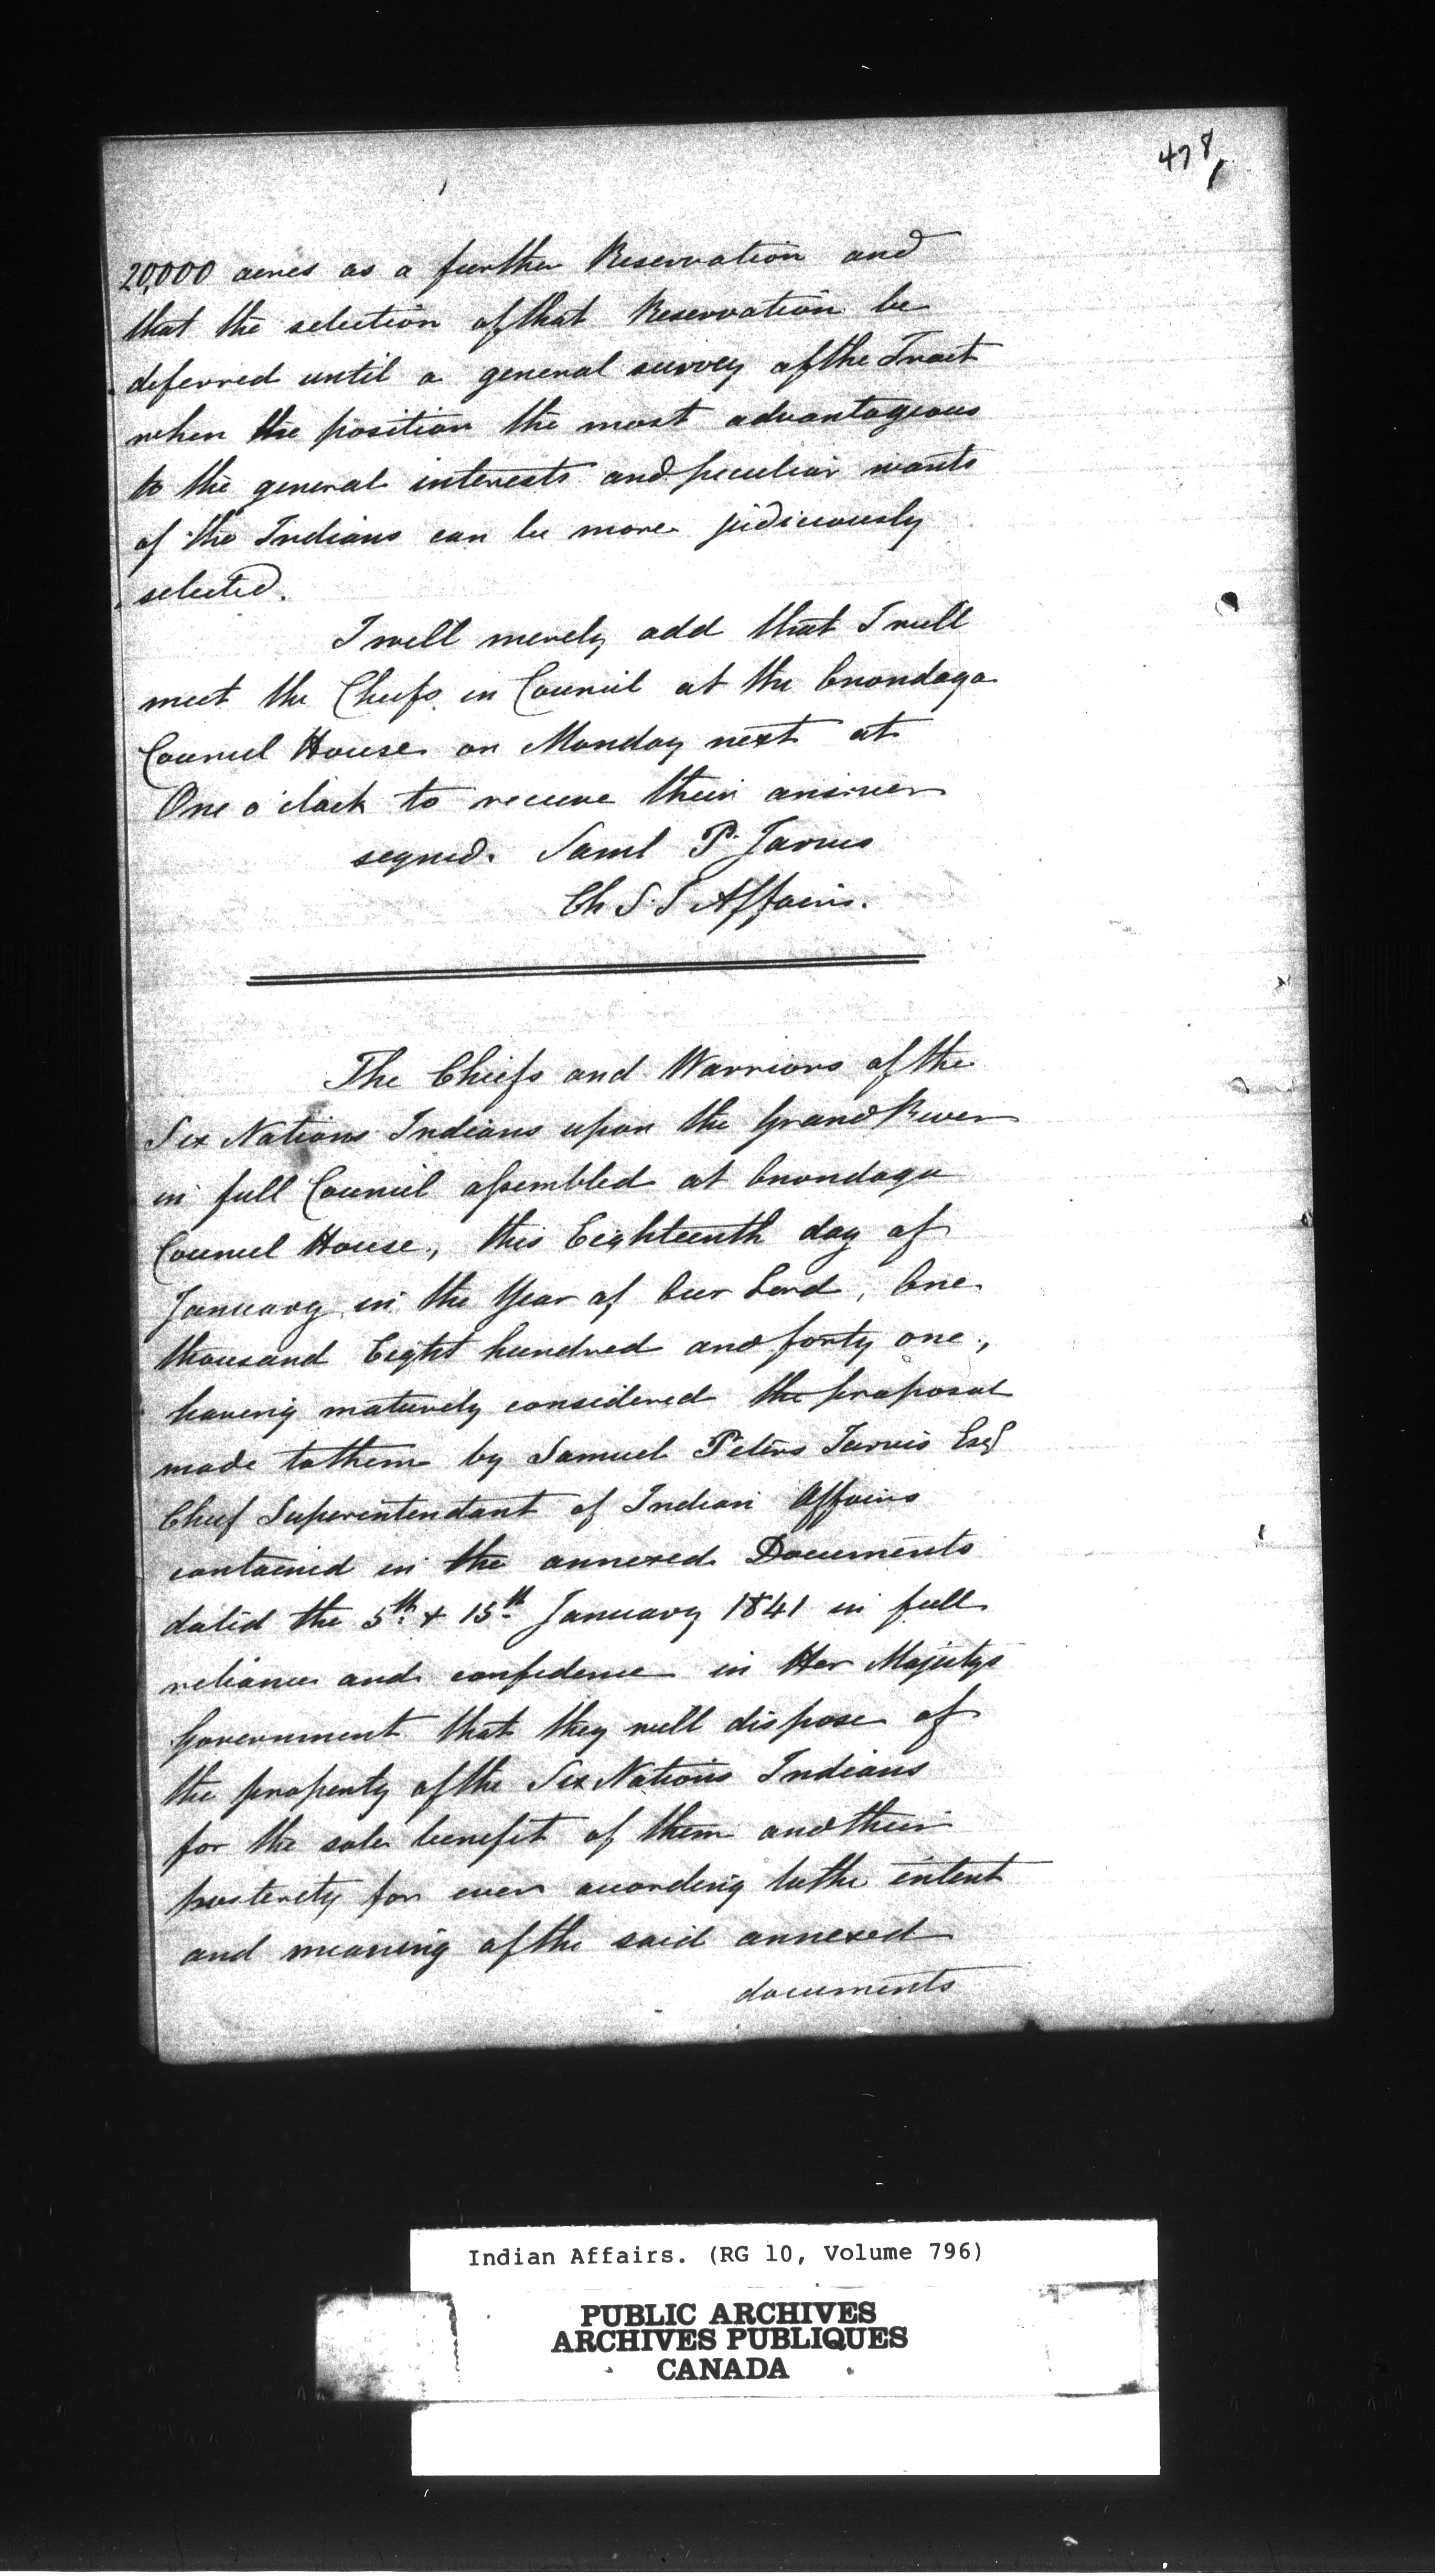 478
20,000 acres as a further Reservation and
that the selection of that Reservation be
deferred until a general survey of the Tract
when the position the most advantageous
to the general interests and peculiar wants
of the Indians can be more judiciously
selected.
I will merely add that I will
meet the Chiefs in Council at the Onondaga
Council House on Monday next at
One o'clock to receive their answer
signed. Saml P. Jarvis
Ch S. I Affairs.
The Chiefs and Warriors of the
Six Nations Indians upon the Grand River
in full Council assembled at Onondaga
Council House, this Eighteenth day of
January in the Year of Our Lord, One
thousand Eight hundred and forty one,
having maturely considered the proposal
made to them by Samuel Peters Jarvis Esq
Chief Superintendant of Indian Affairs
contained in the annexed Documents
dated the 5th & 15th January 1841 in full
reliance and confidence in Her Majestys
Government that they will dispose of
the property of the Six Nations Indians
for the sole benefit of them and their
posterity for ever according to the intent
and meaning of the said annexed
documents
Indian Affairs. (RG 10, Volume 796)
PUBLIC ARCHIVES
ARCHIVES PUBLIQUES
CANADA